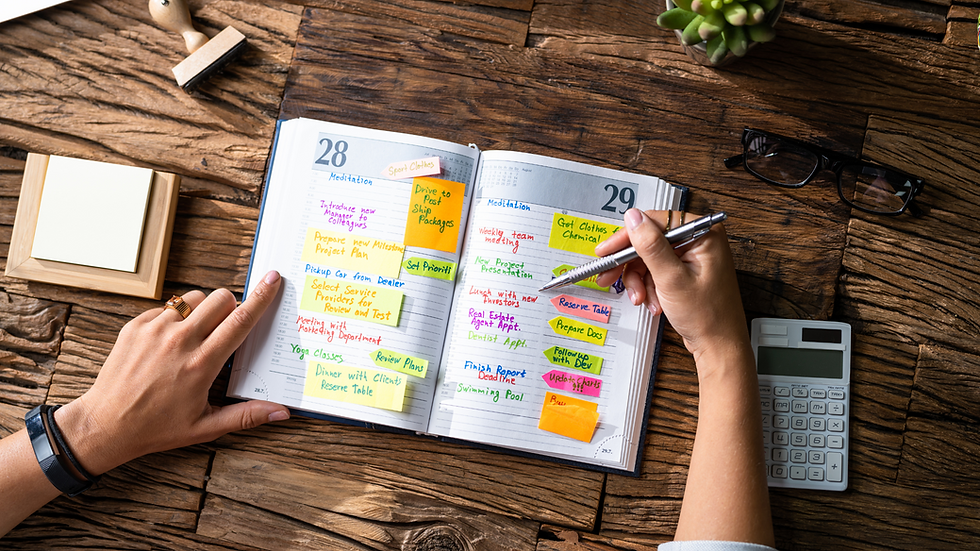 28
Sport Clothes
Meditation
Drive to
Post
Ship
Packages
Introduce new
Manager to
Colleagues
Prepare new Milestone
Project Plan
Set Prioriti
Pickup Car from Dealer
Select Service
Providers for
Review and Test
Meeting with
Marketing Department
Yoga Classes
Review Plans
Dinner with Clients
Reserve Table
29
Meditation
Get Clothes
Chemical
Weekly team
meeting
New Project
Presentation
Lunch with new
Investors
Reserve Table
Real Estate
Agent Appt.
Prepare Docs
Dentist Appt.
Followup
with Dev
Finish Report
Deadline
Update Charts
Swimming Pool
29.7.